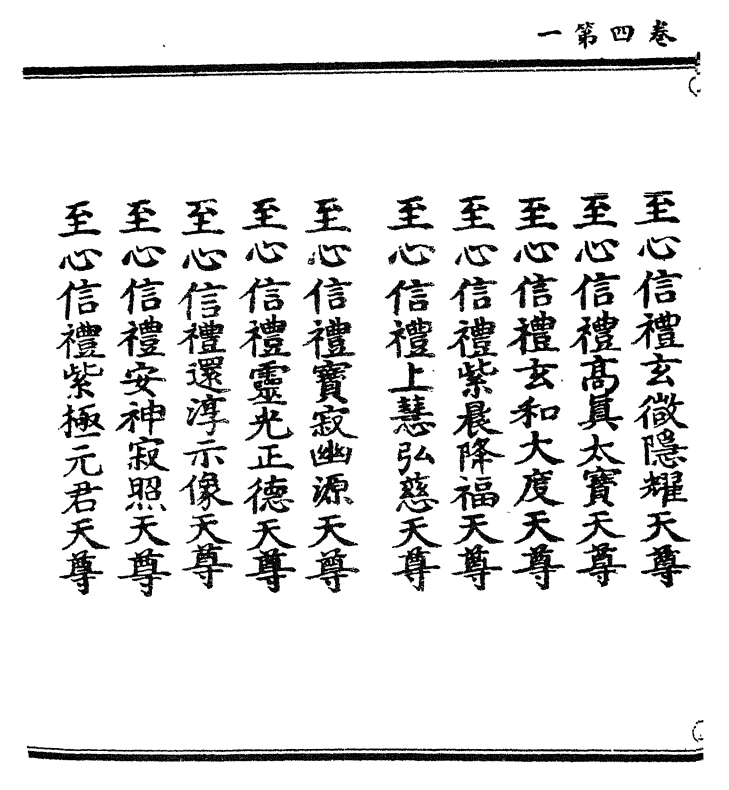 卷四第一
至心信禮玄微隱耀天尊
至心信禮高真太寶天尊
至心信禮玄和大度天尊
至心信禮紫晨降福天尊
至心信禮上慧弘慈天尊
至心信禮寶寂幽源天尊
至心信禮靈光正德天尊
至心信禮還淳示像天尊
至心信禮安神寂照天尊
至心信禮紫極元君天尊